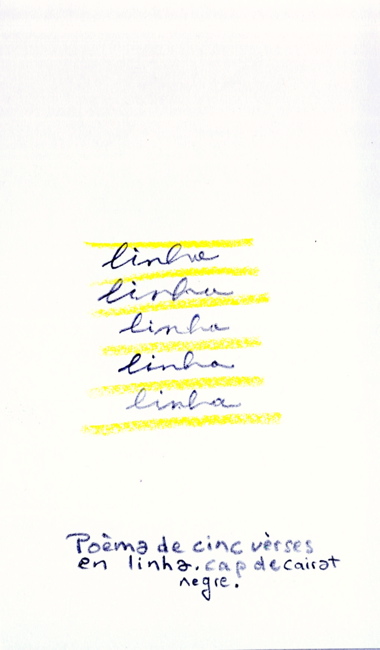 linha
linha
linha
linha
linha
Poèma de cinc vèrses
en linha. cap de cairat
negre.